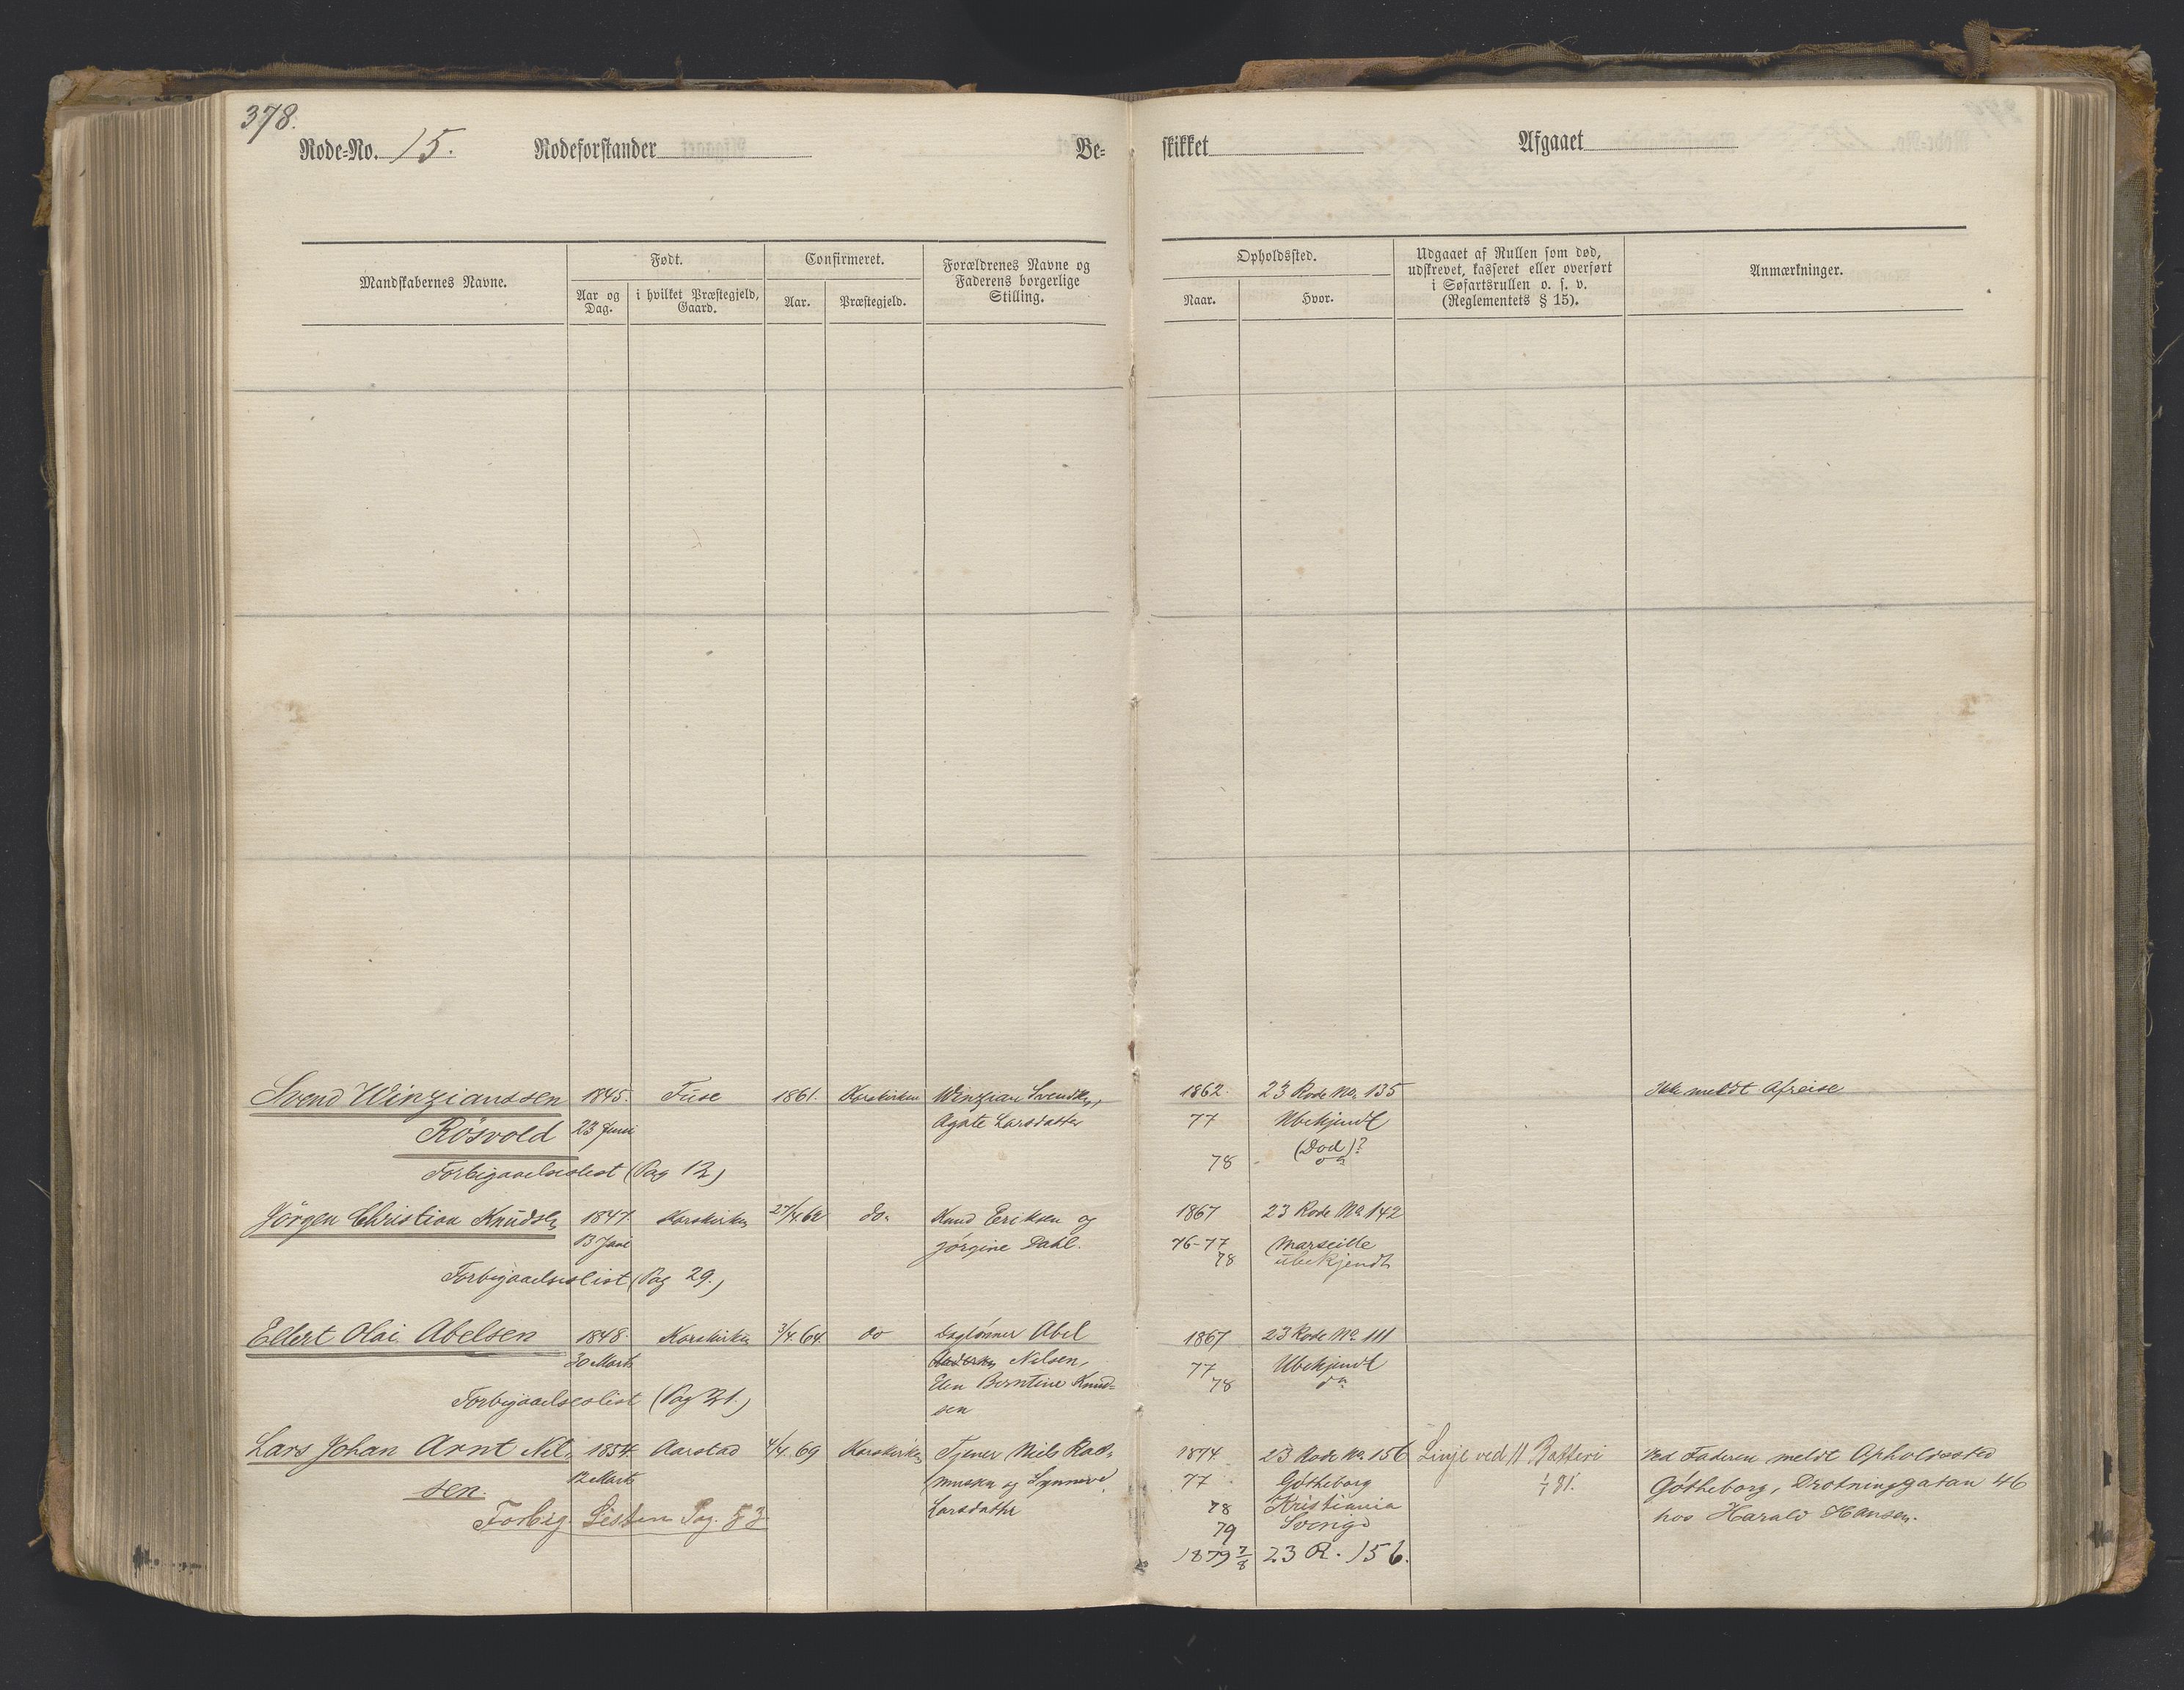 378.
Rode-No. 15. Rodeforstander Be-
skikket Afgaaet
Mandskabernes Navne.
Født.
Aar og Dag.
i hvilket Præstegjeld, Gaard.
Confirmeret.
Aar.
Præstegjeld.
Forældrenes Navne og
Faderens borgerlige
Stilling.
Opholdssted.
Naar.
Hvor.
Udgaaet af Rullen som død,
udskrevet, kasseret eller overført
i Søfartsrullen o. s. v.
(Reglementets § 15).
Anmærkninger.
Svend Winzianssen 1845. Füse 1861. Korskirken Winzian Svendsen, 1862. 23 Rode No. 135 Ikke meldt Afreise
Rösvold 23 Juni Agate Larsdatter 77 Ubekjendt
(Död)?
Forbigaaelseslist (Pag 12) 78 do
Jörgen Christian Knüdsen 1847. Korskirken 27/4.62 do. Knud Eriksen og 1867 23 Rode No 142
13 Juni Jörgine Dahl. 76-77 Marseille
78 übekjendt
Forbigaaelseslist (Pag 29.)
Ellert Olai Abelsen 1848. Korskirken 3/4.64. do Daglönner Abel 1867 23 Rode No. 111
30 Marts Nilsen, 77 Ubekjendt
Elen Berntine Knud- 78 do
Forbigaaelseslist (Pag 31.) sen
Lars Johan Arnt Nil- 1854. Aarstad 4/4.69 Korskirken Tjener Niels 1874. 23 Rode No. 156 Linje ved 11 Batteri Ved Faderen meldt Opholdssted
sen. 12 Marts og Synneve 77. Götheborg 1/1 81. Götheborg, Drotninggatan 46
Larsdatter 78 Kristiania hos Harald Hansen.
Forbig. Listen Pag. 53 79 Sverige
1879 7/8 23 R. 156.